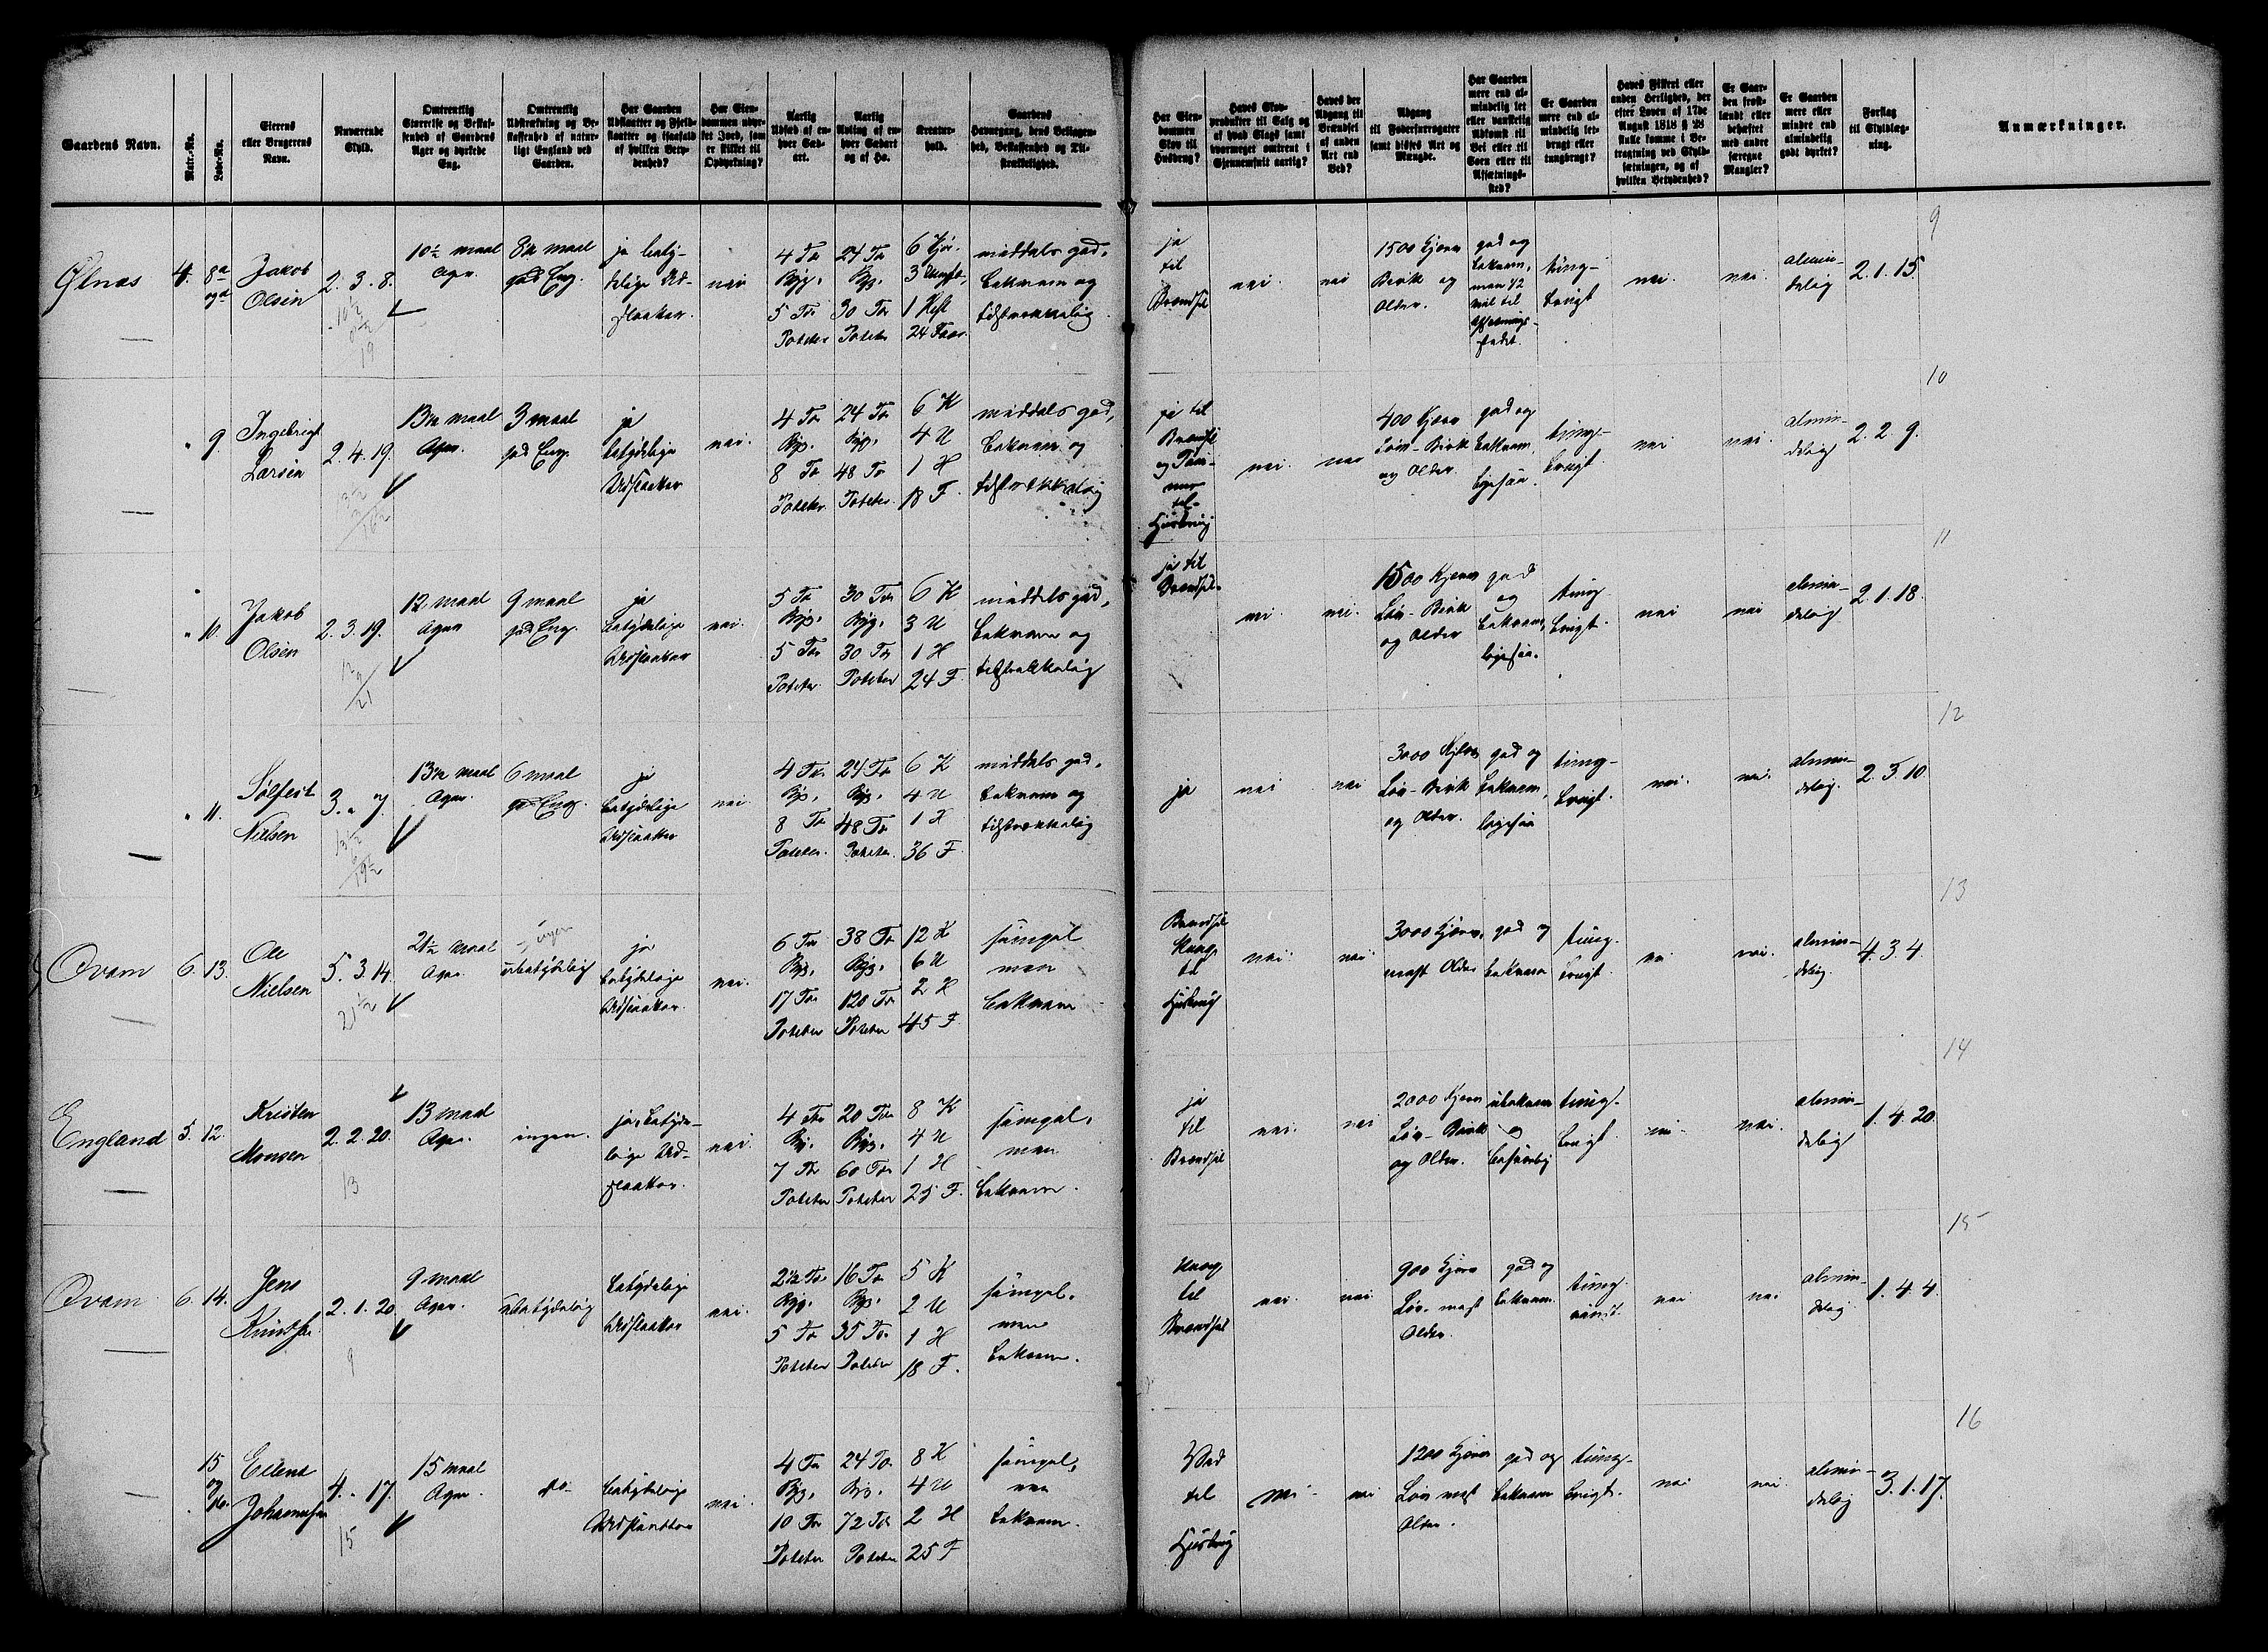 Gaardens Navn.
Matr.-No.
Løbe-No.
Eierens eller Brugerens Navn.
Nuværende Skyld.
Omtrentlig Størrelse og Beskaffenhed af Gaardens Ager og dyrkede Eng.
Omtrentlig Udstrækning og Beskaffenhed af naturligt England ved Gaarden.
Har Gaarden Udslaatter og Fjeldslaatter og isaafald af hvilken Betydenhed?
Har Eiendommen udyrket Jord, som er skikket til Opdyrkning?
Aarlig Udsæd af enhver Sædart.
Aarlig Avling af enhver Sædart og af Hø.
Kreaturhold.
Gaardens Havnegang, dens Beliggenhed, Beskaffenhed og Tilstrækkelighed.
Har Eiendommen Skov til Husbrug?
Haves Skovprodukter til Salg og af hvad Slags samt hvormeget omtrent i Gjennemsnit aarlig?
Haves der Adgang til Brændsel af anden Art end Ved?
Adgang til Fodersurrogater samt disses Art og Mængde.
Har Gaarden mere end almindelig let eller vanskelig Adkomst til Vei eller til Søen eller til Afsætningssted?
Er Gaarden mere end almindelig letbrugt eller tungbrugt?
Haves Fiskeri eller anden Herlighed, der efter Loven af 17de August 1818 § 28 skulle komme i Betragtning ved Skyldsætningen, og af hvilken Betydenhed?
Er Gaarden frostlændt eller behæftet med andre særegne Mangler?
Er Gaarden mere eller mindre end almindelig godt dyrket?
Forslag til Skyldlægning.
Anmærkninger.
9
Ølnes 4. 8a Jakob Olsen 2. 3. 8.
10½ maal Ager.
8½ maal god Eng.
ja betydelige Udslaatter.
nei
4 Tr Byg. 5 Tr Poteter
24 Tr Byg. 30 Tr Poteter
6 Kjør. 3 Ungf. 1 Hest 24 Faar
middels god, bekvem og tilstrækkelig
ja til Brændsel
nei. nei
1500 Kjerv Birk og Older.
god og bekvem, men ½ mil til Afsætningsstedet.
tungbrugt
nei. nei.
almindelig
2. 1. 15.
10
" 9. Ingebrigt Larsen 2. 4. 19.
13½ maal Ager.
3 maal god Eng.
ja betydelige Udslaatter
nei.
4 Tr Byg. 8 Tr Poteter.
24 Tr Byg. 48 Tr Poteter.
6 K 4 U 1 H 18 F.
middels god, bekvem og tilstrækkelig
ja til Brændsel og Tømmer til Husbrug
nei. nei
400 Kjerv Løv-Birk og Older.
god og bekvem. ligesaa.
tungbrugt.
nei nei.
almindelig
2. 2. 9.
11
" 10. Jakob Olsen 2. 3. 19.
12 maal Ager
9 maal god Eng.
ja betydelige Udslaatter
nei.
5 Tr Byg. 5 Tr Poteter
30 Tr Byg. 30 Tr Poteter
6 K 3 U 1 H 24 F.
middels god, bekvem og tilstrækkelig
ja til Brændsel.
nei. nei.
1500 Kjerv Løv-Birk og Older
god og bekvem, ligesaa.
tungbrugt.
nei nei
almindelig
2. 1. 18.
12
" 11. Sølfest Nielsen 3. " 7.
13½ maal Ager.
6 maal god Eng.
ja betydelige Udslaatter
nei
4 Tr Byg. 8 Tr Poteter.
24 Tr Byg. 48 Tr Poteter.
6 K 4 U 1 H 36 F.
middels god. bekvem og tilstrækkelig
ja nei nei
3000 Kjerv Løv-Birk og Older.
god og bekvem, ligesaa
tungbrugt.
nei. nei.
almindelig.
2. 3. 10.
13
Qvam 6. 13. Ole Nielsen 5. 3. 14.
21½
21½ maal Ager.
ingen
ubetydelig
ja betydelige Udslaatter.
nei.
6 Tr Byg. 17 Tr Poteter
38 Tr Byg. 120 Tr Poteter
12 K 6 U 2 H 45 F.
simpel men bekvem
Brændsel knap til Husbrug
nei. nei.
3000 Kjerv. mest Older
god og bekvem
tungbrugt.
nei nei.
almindelig.
4. 3. 4.
14
England 5. 12. Kristen Monsen 2. 2. 20.
13
13 maal Ager.
ingen.
ja, betydelige Udslaatter.
nei.
4 Tr Byg. 7 Tr Poteter
20 Tr Byg. 60 Tr Poteter
8 K 4 U 1 H 25 F.
simpel, men bekvem.
ja til Brændsel
nei. nei
2000 Kjerv Løv-Birk og Older.
ubekvem og besværlig
tungbrugt.
nei. nei.
almindelig
1. 4. 20.
15
Qvam 6. 14. Jens Knudsen 2. 1. 20.
9
9 maal Ager.
ubetydelig
betydelige Udslaatter
nei.
2½ Tr Byg. 5 Tr Poteter
16 Tr Byg. 35 Tr Poteter
5 K 2 U 1 H 18 F.
simpel. men bekvem.
knap til Brændsel
nei. nei.
900 Kjerv Løv mest Older.
god og bekvem.
nei nei
almindelig
1. 4. 4.
16
15 og 16. Eilert Johannesen 4. " 17.
15
15 maal Ager.
do
betydelige Udslaatter
nei.
4 Tr Byg. 10 Tr Poteter
24 Tr Byg. 72 Tr Poteter
8 K 4 U 2 H 25 F
simpel, men bekvem.
Ved til Husbrug
nei nei
1200 Kjerv Løv mest Older.
god og bekvem
tungbrugt.
nei nei.
almindelig
3. 1. 17.